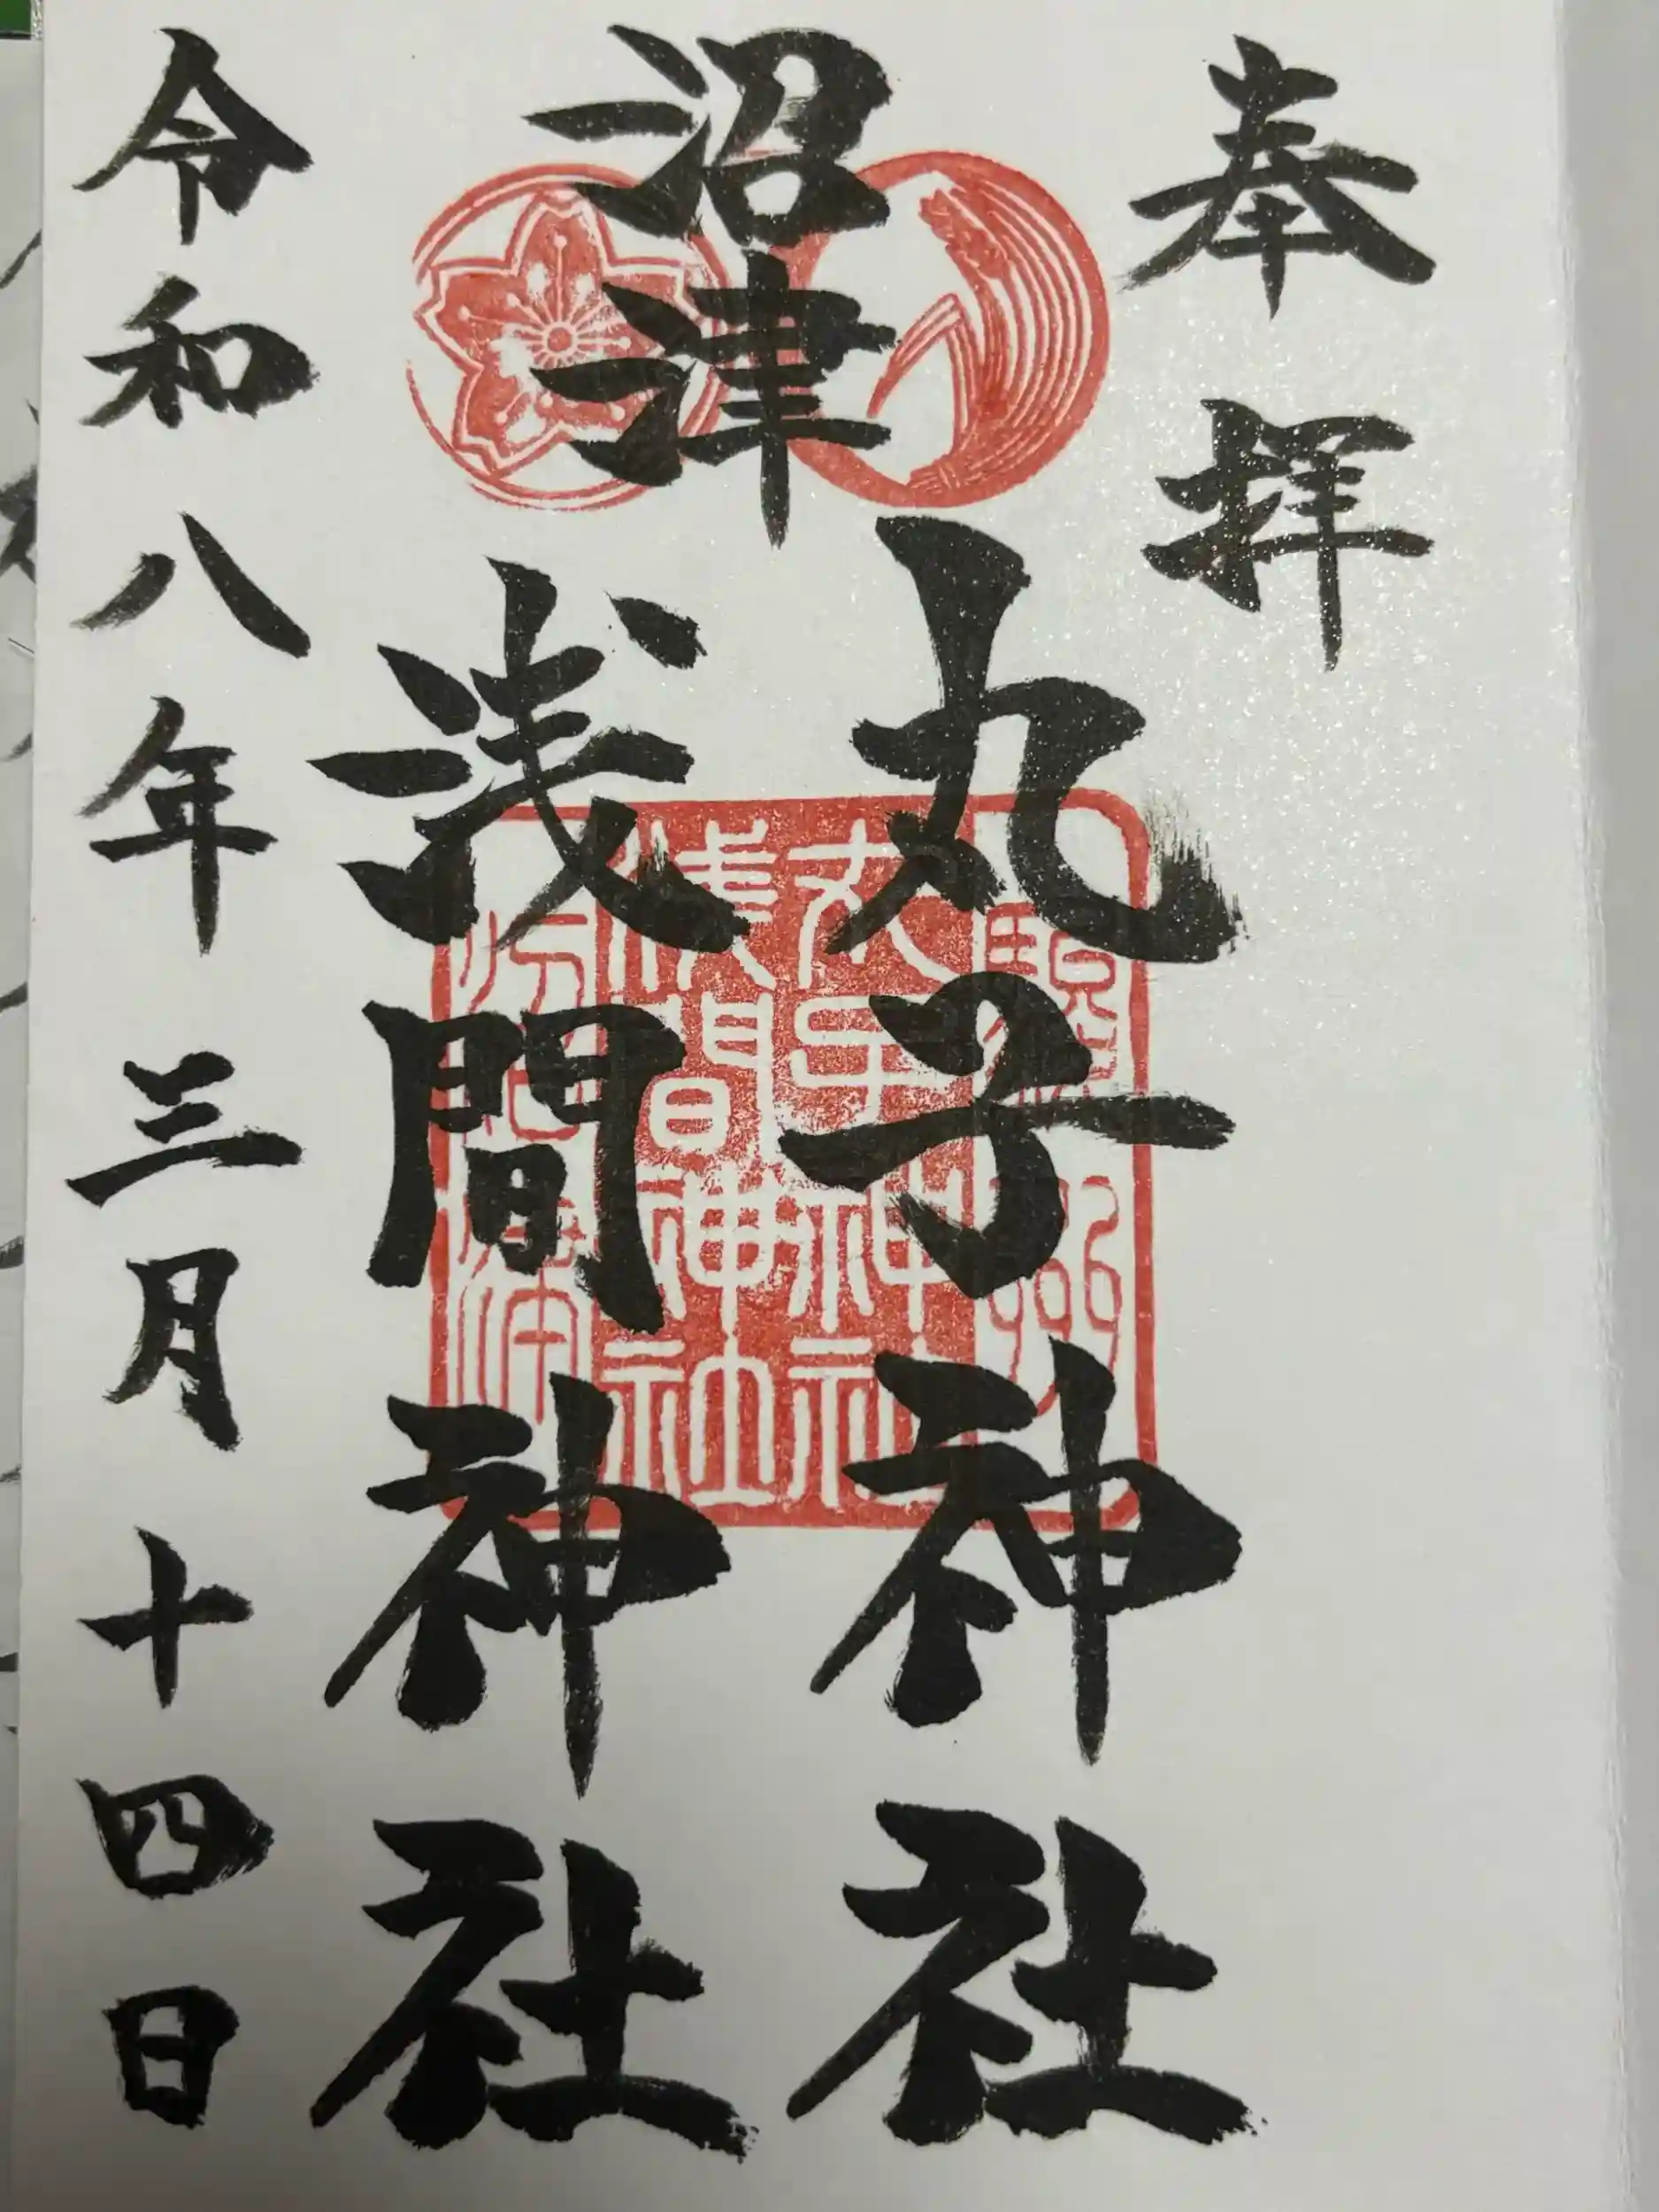 奉拝
沼津
丸子神社
浅間神社
令和八年三月十四日
丸子神社
浅間神社